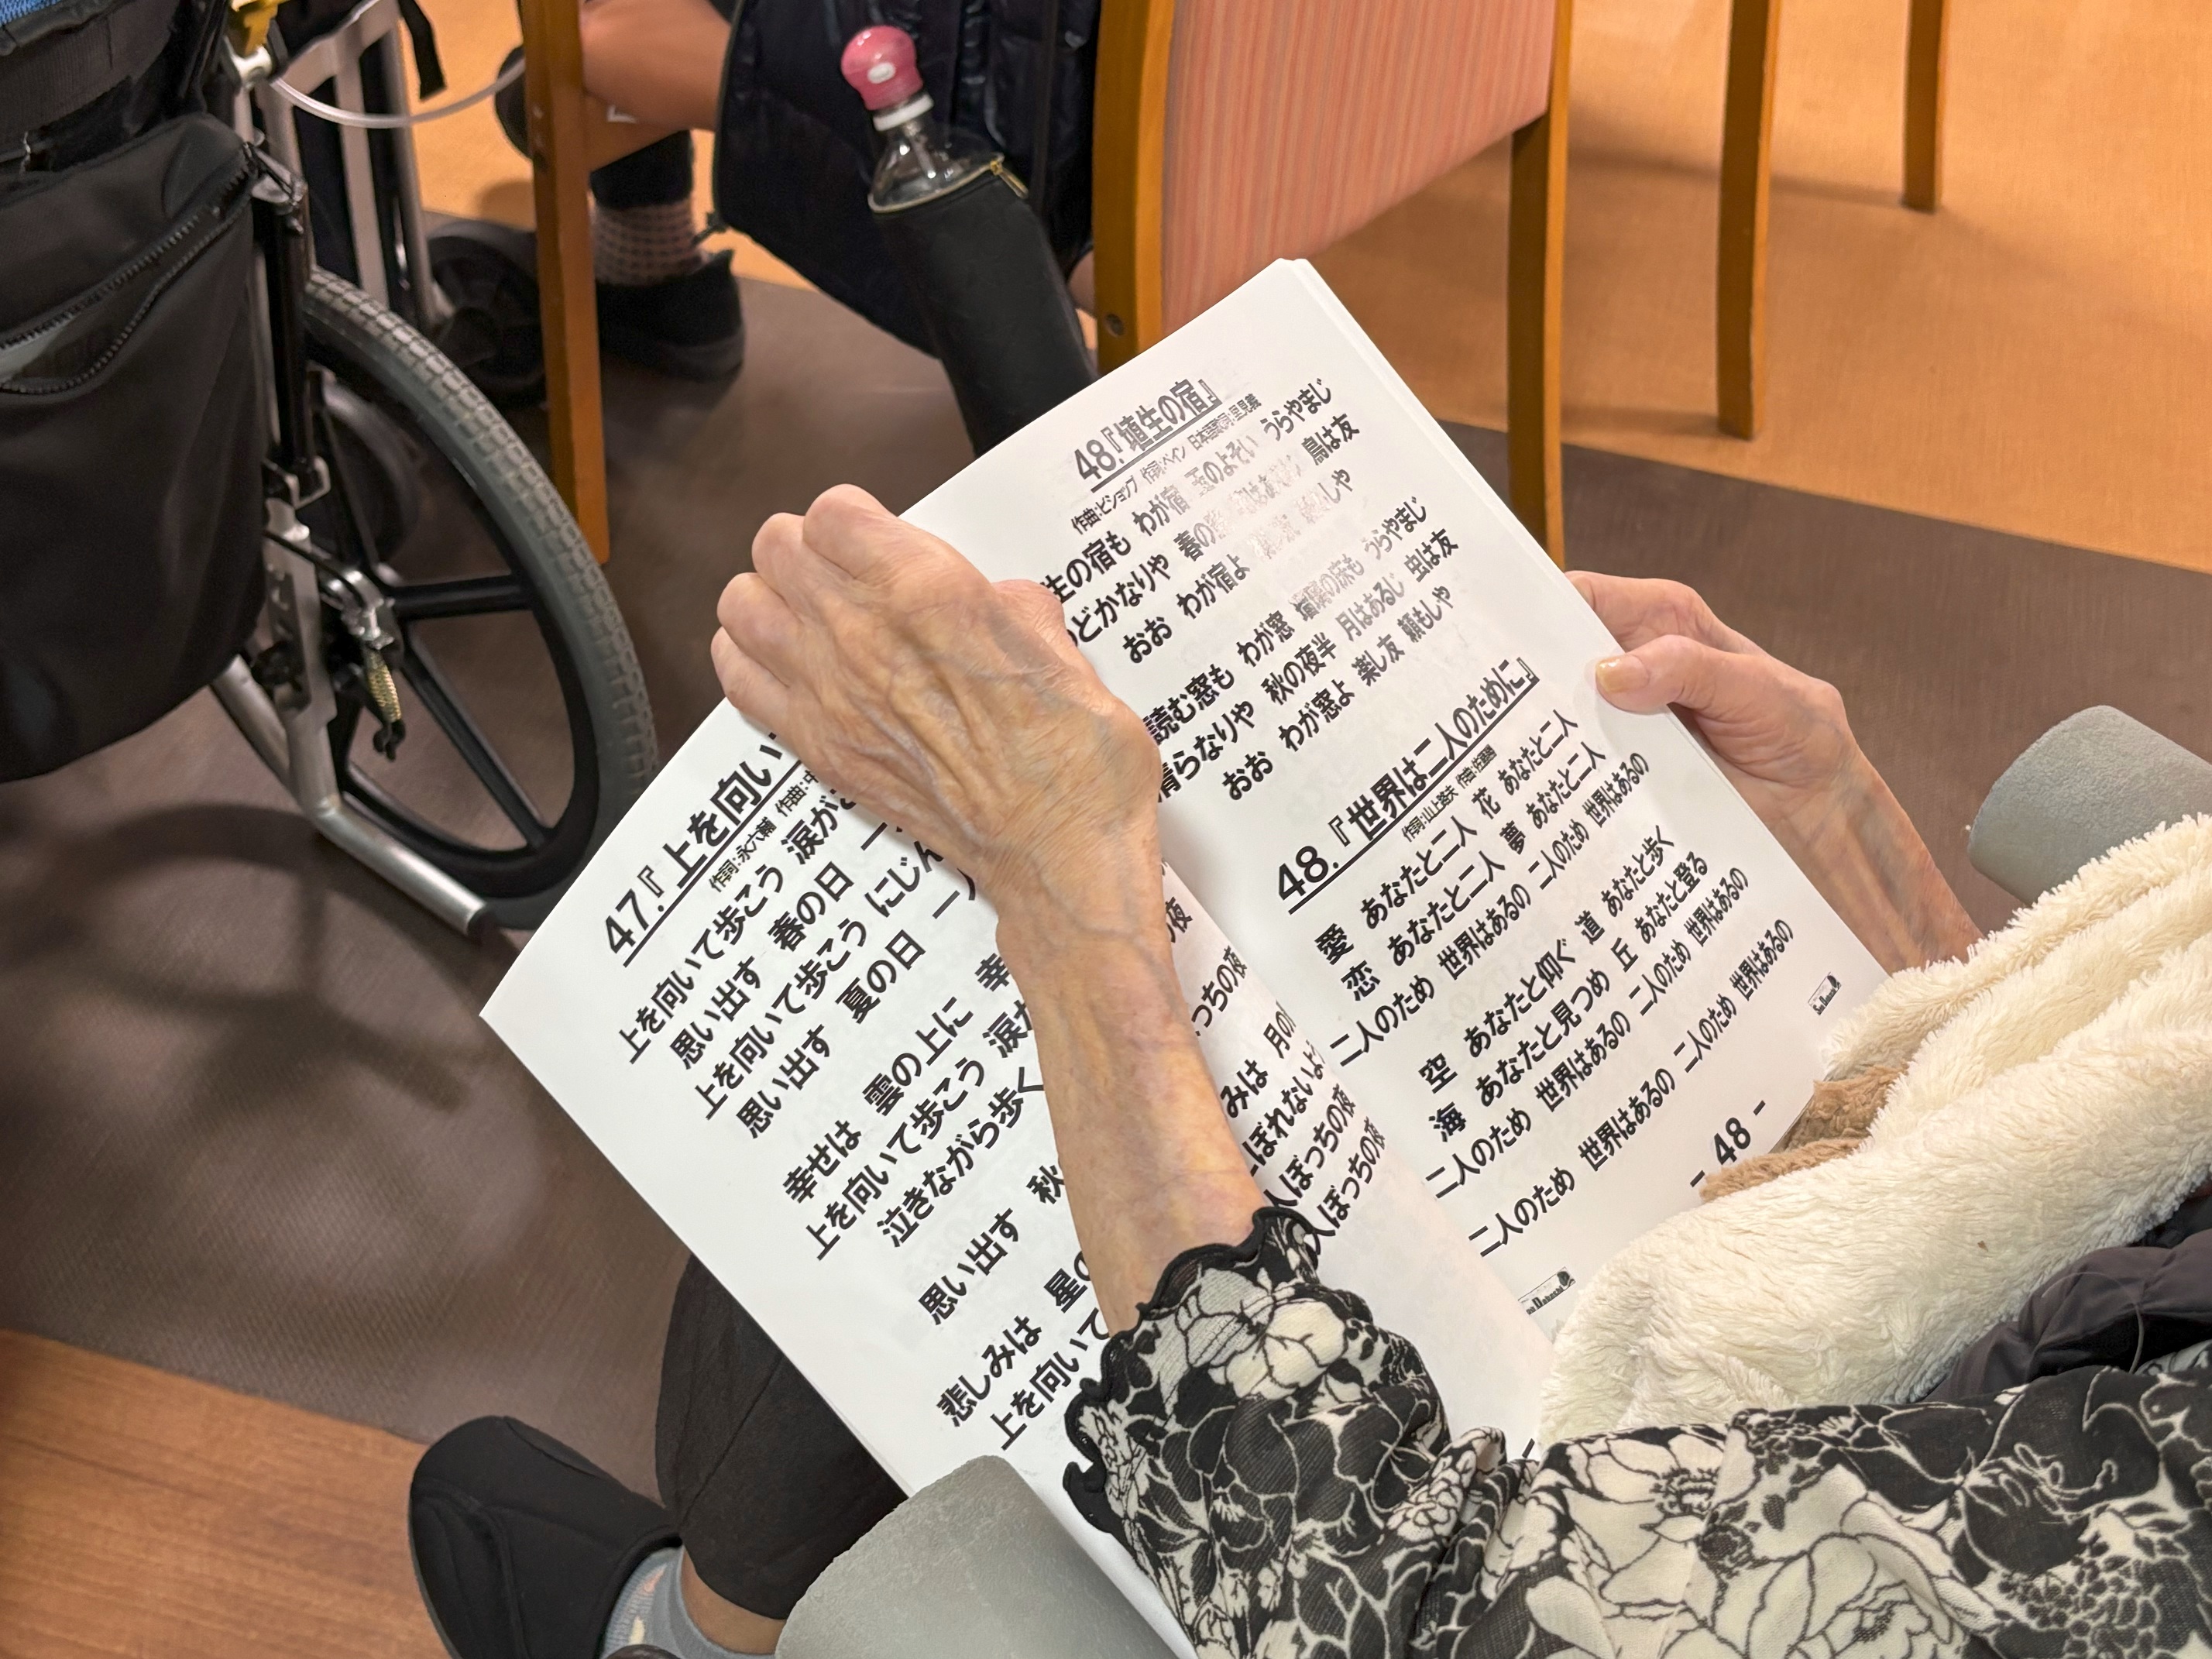 47.『上を向い
作詞:永六輔 作曲:中
上を向いて歩こう 涙が
思い出す 春の日 一
上を向いて歩こう にじん
思い出す 夏の日 一人
幸せは 雲の上に 幸
上を向いて歩こう 涙が
泣きながら歩く
思い出す 秋
悲しみは 星の
上を向いて
の夜
っちの夜
みは 月の
こぼれないよ
人ぼっちの夜
人ぼっちの夜
48.『埴生の宿』
作曲:ビショップ 作詞:ペイン 日本語歌詞:里見義
生の宿も わが宿 玉のよそい うらやまじ
のどかなりや 春の 鳥は友
おお わが宿よ しや
読む窓も わが窓 瑠璃の床も うらやまじ
清らなりや 秋の夜半 月はあるじ 虫は友
おお わが窓よ 楽し友 頼もしや
48.『世界は二人のために』
作詞:山上路夫 作曲:佐
愛 あなたと二人 花 あなたと二人
恋 あなたと二人 夢 あなたと二人
二人のため 世界はあるの 二人のため 世界はあるの
空 あなたと仰ぐ 道 あなたと歩く
海 あなたと見つめ 丘 あなたと登る
二人のため 世界はあるの 二人のため 世界はあるの
二人のため 世界はあるの 二人のため 世界はあるの
- 48 -